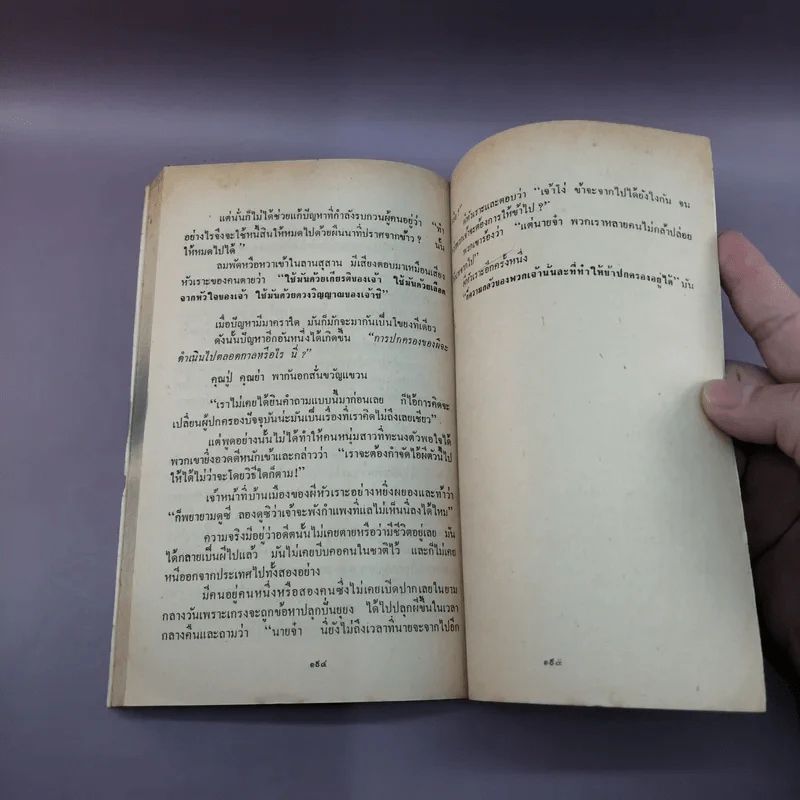 แต่นั่นก็ไม่ได้ช่วยแก้ปัญหาที่กำลังรบกวนผู้คนอยู่ว่า “ทำ
อย่างไรจึงจะใช้หนี้สินให้หมดไปด้วยผืนนาที่ปราศจากข้าว? นั้น
ให้หมดไปได้”
ลมพัดหรือหวาเข้าไปในลานสุสาน มีเสียงตอบมาเหมือนเสียง
หัวเราะของคนตายว่า “ใช้มันด้วยเกียรติของเจ้า ใช้มันด้วยเลือด
จากหัวใจของเจ้า ใช้มันด้วยดวงวิญญาณของเจ้าซี”
เมื่อปัญหามีมาคราใด มันก็มักจะมากันเป็นใยยงทีเดียว
ดังนั้นปัญหาอีกอันหนึ่งได้เกิดขึ้น “การปกครองของผีจะ
ดำเนินไปตลอดกาลหรือไร นี่?”
คุณปู่ คุณย่า พากันอกสั่นขวัญแขวน
“เราไม่เคยได้ยินคำถามแบบนี้มาก่อนเลย ก็ไอ้การคิดจะ
เปลี่ยนผู้ปกครองปัจจุบันน่ะมันเป็นเรื่องที่เราคิดไม่ถึงเลยเชียว”
แต่พูดอย่างนั้นไม่ได้ทำให้คนหนุ่มสาวที่ทะนงตัวพอใจได้
พวกเขายิ่งอวดดีหนักเข้าและกล่าวว่า “เราจะต้องกำจัดไอ้ผีตัวนี้ไป
ให้ได้ไม่ว่าจะโดยวิธีใดก็ตาม!”
เจ้าหน้าที่บ้านเมืองของผีหัวเราะอย่างหยิ่งผยองและท้าว่า
“ก็พยายามดูซี่ ลองดูซิว่าเจ้าจะพังกำแพงที่แลไม่เห็นนี่ลงได้ไหม”
ความจริงมีอยู่ว่าอดีตนั้นไม่เคยตายหรือว่ามีชีวิตอยู่เลย มัน
ได้กลายเป็นผีไปแล้ว มันไม่เคยบีบคอคนในชวติไว้ และก็ไม่เคย
หนีออกจากประเทศไปทั้งสองอย่าง
มีคนอยู่คนหนึ่งหรือสองคนซึ่งไม่เคยเปิดปากเลยในยาม
กลางวันเพราะเกรงจะถูกข้อหาปลุกปั่นยุยง ได้ไปปลุกผีขึ้นในเวลา
กลางคืนและถามว่า “นายจ๋า นี่ยังไม่ถึงเวลาที่นายจะจากไปอีก
๑๕๔
ผีหัวเราะและตอบว่า “เจ้าโง่ ข้าจะจากไปได้ยังไงกัน จน
จะต้องการให้ข้าไป?”
พวกเขาร้องว่า “แต่นายจ๋า พวกเราหลายคนไม่กล้าปล่อย
ผีหัวเราะอีกครั้งหนึ่ง
“ก็ความกลัวของพวกเจ้านั่นละที่ทำให้ข้าปกครองอยู่ได้” มัน
๑๕๕